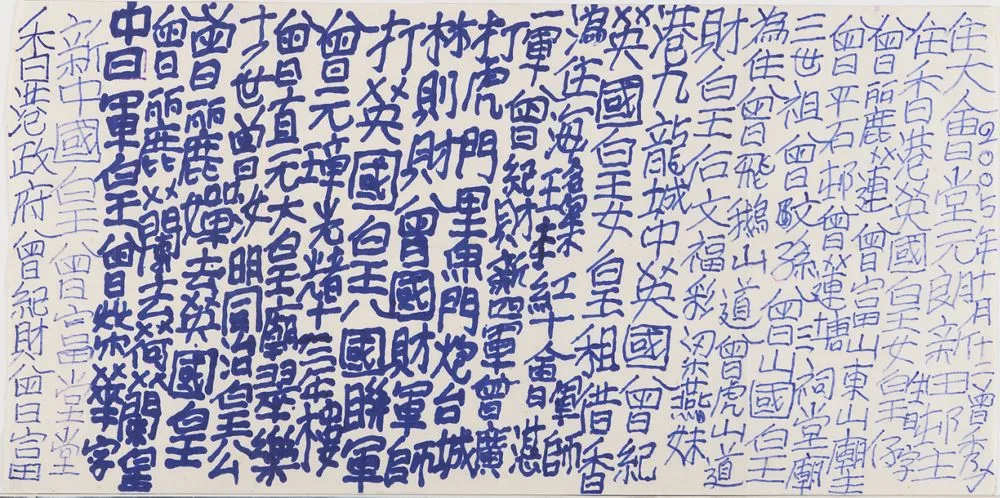 2005年財月什一曾秀
住大會堂元良新田邨主
住香港英國皇女皇
曾麗蓮曾富山東山廟
曾平石邨曾蓮塘祠堂廟
三世祖曾蚊孫曾三
為住曾飛鵝山道曾山國皇
財皇后文福彩梁燕妹曾虎山道
港九龍城中英國曾紀
英國皇女皇租借香
為住海紅十會軍師
一軍曾紀財新四軍曾廣湛
打虎門里魚門炮台城
林則財曾國財軍師
打英國皇八國聯軍
曾元璋光緒年三年樓
曾直元大皇廟翠樂
世曾女明同治皇公
曾麗嬋去英國皇
曾麗蘭去荷蘭皇
中曰軍皇曾字
新中國皇曾富堂堂
香港政府曾紀財曾富